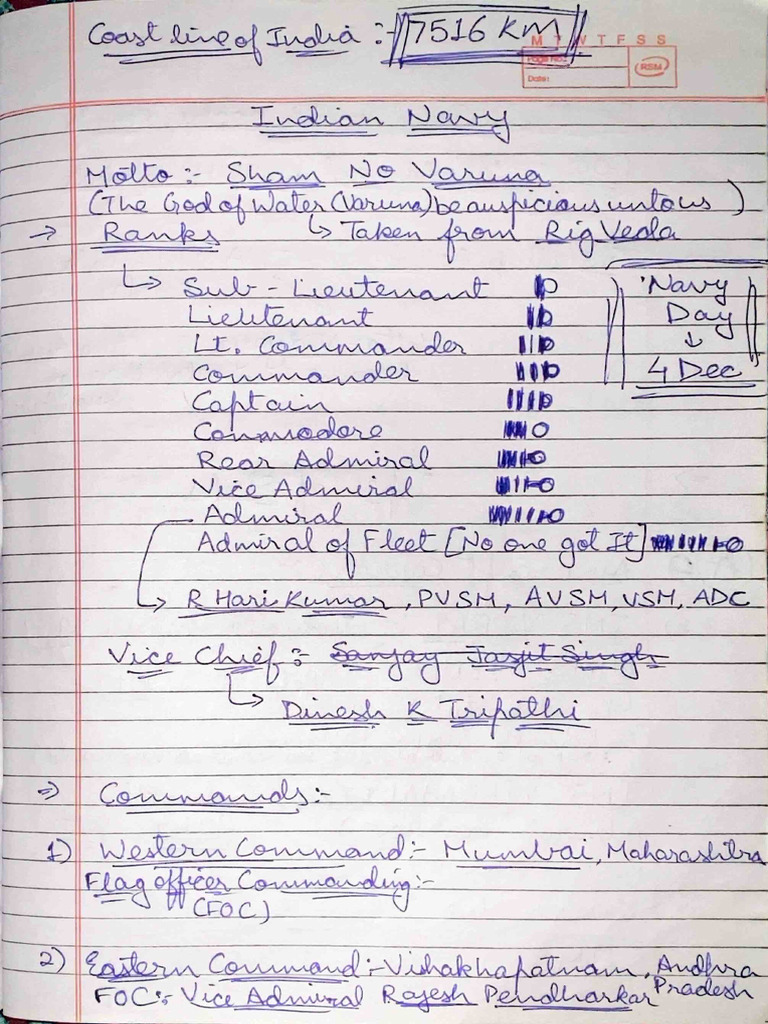 Coast line of India :- 7516 KM
M T W T F S S
Page No.:
Date:
RSM
Indian Navy
Motto :- Sham No Varuna
(The God of Water (Varuna) be auspicious unto us)
→ Ranks ↳ Taken from Rig Veda
↳ Sub-Lieutenant
Lieutenant
Lt. Commander
Commander
Captain
Commodore
Rear Admiral
Vice Admiral
Admiral
Admiral of Fleet [No one got It]
Navy
Day
↓
4 Dec
↳ R Hari Kumar, PVSM, AVSM, VSM, ADC
Vice Chief :- Sanjay Jasjit Singh
↳ Dinesh K Tripathi
⇒ Commands :-
1) Western Command :- Mumbai, Maharashtra
Flag officer Commanding :-
(FOC)
2) Eastern Command :- Vishakhapatnam, Andhra
Pradesh
FOC :- Vice Admiral Rajesh Pendharkar